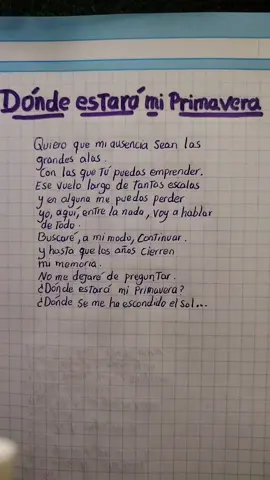 Dónde estará mi Primavera
Quiero que mi ausencia sean las
grandes alas.
Con las que Tú puedas emprender.
Ese vuelo largo de Tantas escalas
y en alguna me puedas perder
yo, aquí, entre la nada, voy a hablar
de Todo.
Buscaré, a mi modo, Continuar.
y hasta que los años Cierren
mi memoria.
No me dejaré de preguntar.
¿Dónde estará mi Primavera?
¿Donde se me ha escondido el sol...